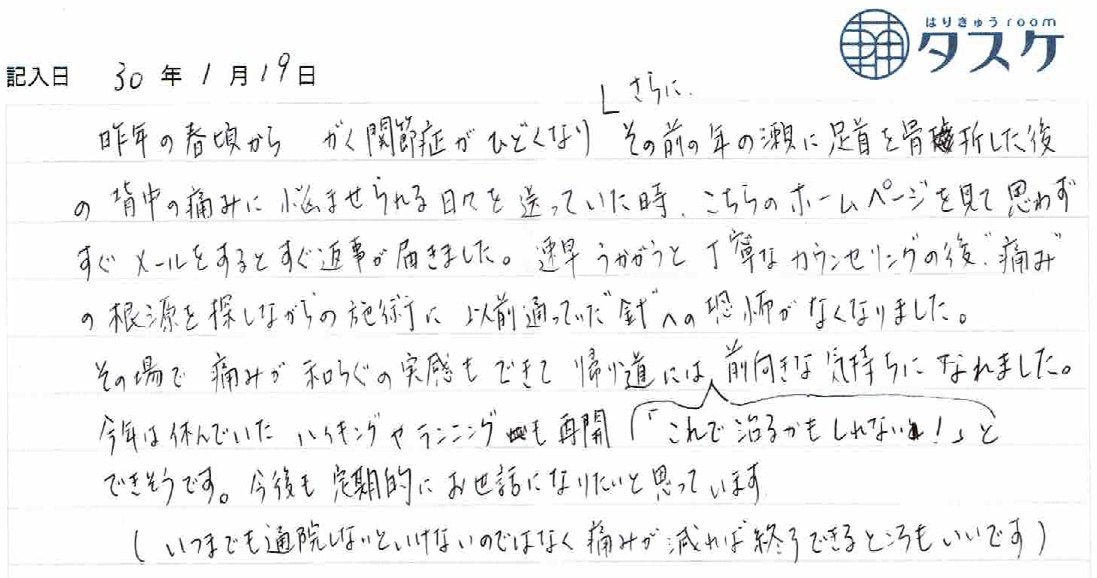 はりきゅうroom
タスケ
記入日 30年1月19日
さらに、
昨年の春頃から がく関節症がひどくなり その前の年の瀬に足首を骨折した後
の背中の痛みに悩ませられる日々を送っていた時、こちらのホームページを見て思わず
すぐメールをするとすぐ返事が届きました。速早うかがうと丁寧なカウンセリングの後"痛み"
の根源を探しながらの施術に以前通っていた"針"への恐怖がなくなりました。
その場で痛みが和らぐの実感もできて帰り道には前向きな気持ちになれました。
今年は休んでいたハイキングやランニングも再開 「これで治るかもしれない!」と
できそうです。今後も定期的にお世話になりたいと思っています
(いつまでも通院しないといけないのではなく痛みが減れば終了できるところもいいです)